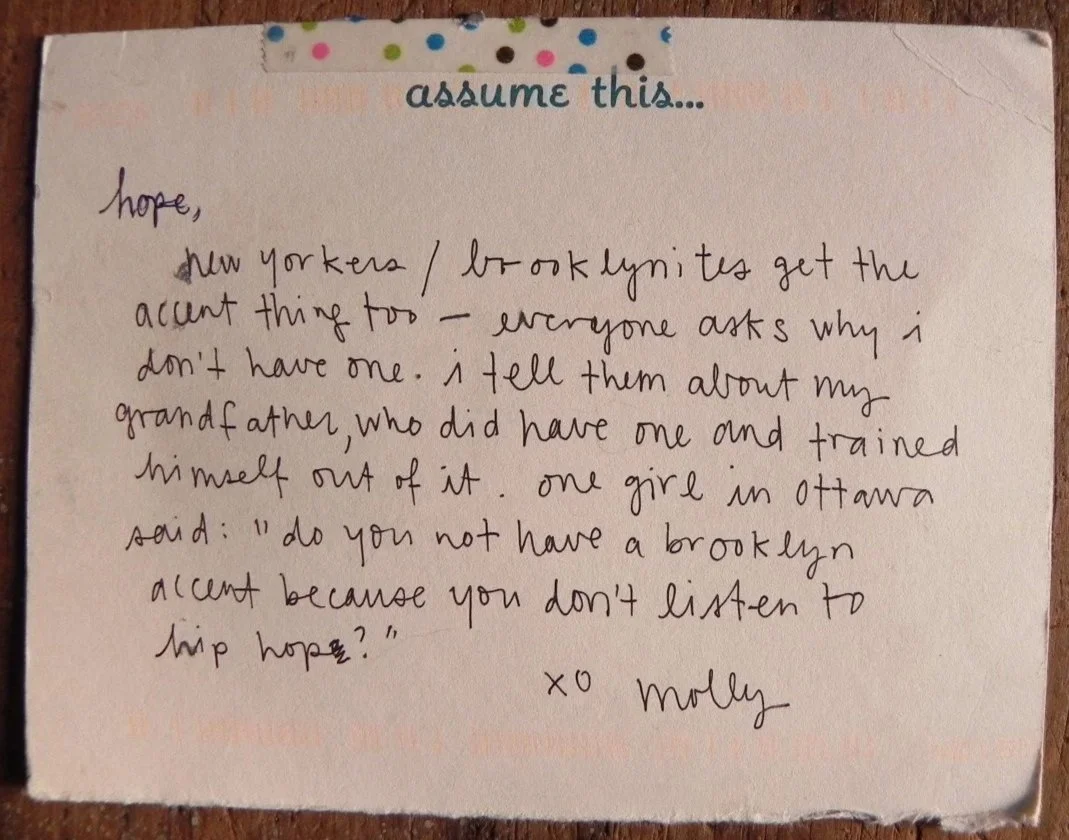 assume this...
hope,
new yorkers / brooklynites get the
accent thing too — everyone asks why i
don't have one. i tell them about my
grandfather, who did have one and trained
himself out of it. one girl in ottawa
said: "do you not have a brooklyn
accent because you don't listen to
hip hop?"
xo molly